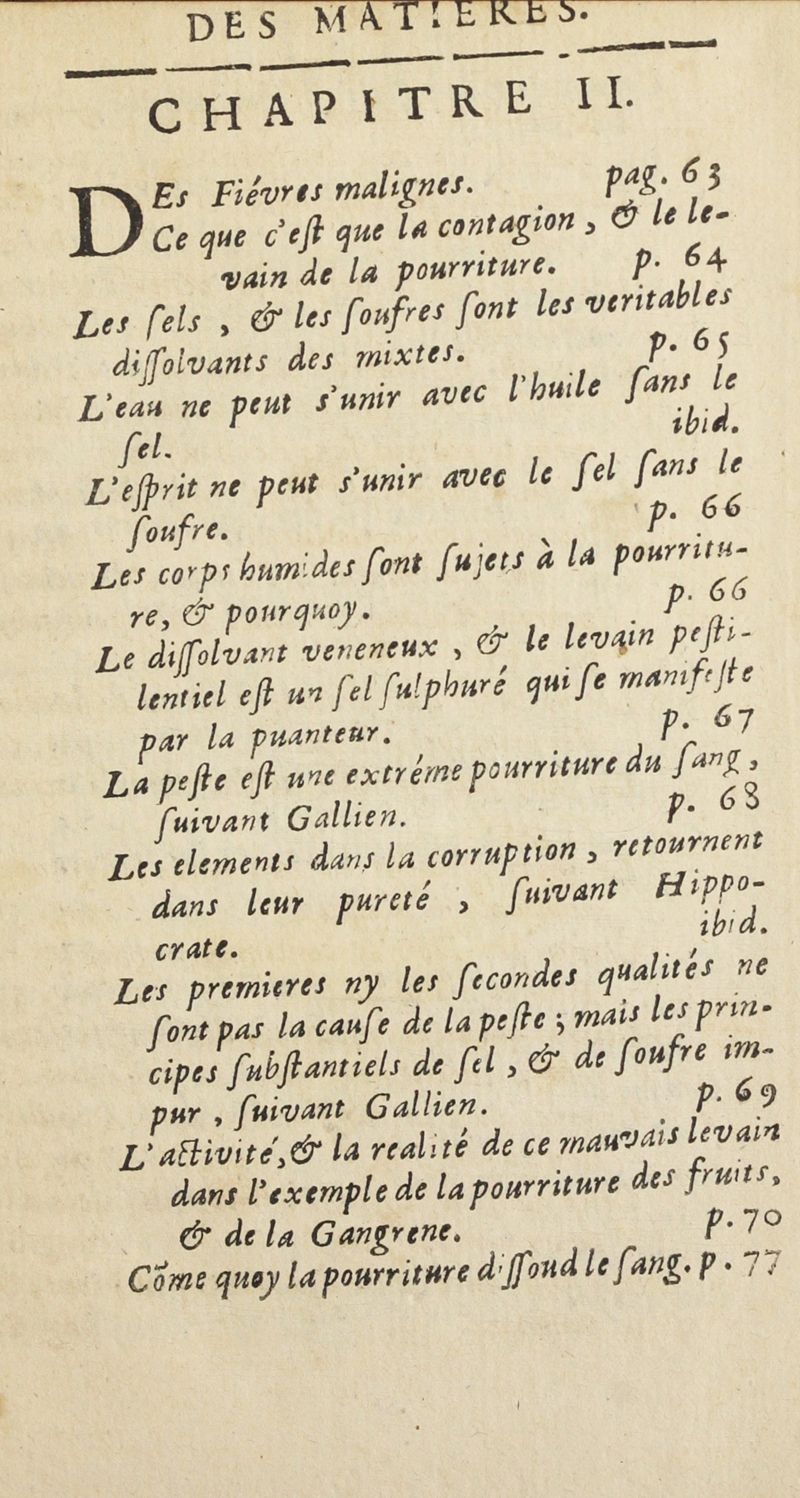 DES MATIERES.
CHAPITRE II.
DEs Fiévres malignes. pag. 63
Ce que c'eſt que la contagion, & le le-
vain de la pourriture. p. 64
Les ſels, & les ſoufres ſont les veritables
diſſolvants des mixtes. p. 65
L'eau ne peut s'unir avec l'huile ſans le
ſel. ibid.
L'eſprit ne peut s'unir avec le ſel ſans le
ſoufre. p. 66
Les corps humides ſont ſujets à la pourritu-
re, & pourquoy. p. 66
Le diſſolvant veneneux, & le levain peſti-
lentiel eſt un ſel ſulphuré qui ſe manifeſte
par la puanteur. p. 67
La peſte eſt une extréme pourriture du ſang,
ſuivant Gallien. p. 68
Les elements dans la corruption, retournent
dans leur pureté, ſuivant Hippo-
crate. ibid.
Les premieres ny les ſecondes qualités ne
ſont pas la cauſe de la peſte; mais les prin-
cipes ſubſtantiels de ſel, & de ſoufre im-
pur, ſuivant Gallien. p. 69
L'activité, & la realité de ce mauvais levain
dans l'exemple de la pourriture des fruits,
& de la Gangrene. p. 70
Cõme quoy la pourriture diſſoud le ſang. p. 77